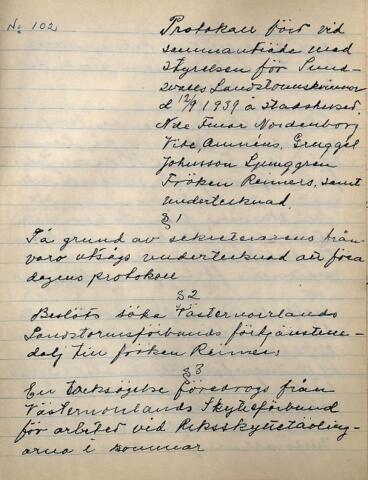 No 102
Protokoll fört vid
sammanträde med
styrelsen för Sund-
svalls Landstormskvinnor
d 12/9 1939 å Stadshuset.
Nde Fruar Nordenborg
Vibe, Amnéus, Gruggel
Johnsson Ljunggren
Fröken Reimers, samt
undertecknad.
§ 1
På grund av sekreterarens från-
varo utsågs undertecknad att föra
dagens protokoll
§ 2
Beslöts söka Västernorrlands
Landstormsförbunds förtjänstme-
dalj till fröken Reimers
§ 3
En tacksägelse föredrogs från
Västernorrlands Skytteförbund
för arbetet vid Riksskyttetävling-
arna i sommar